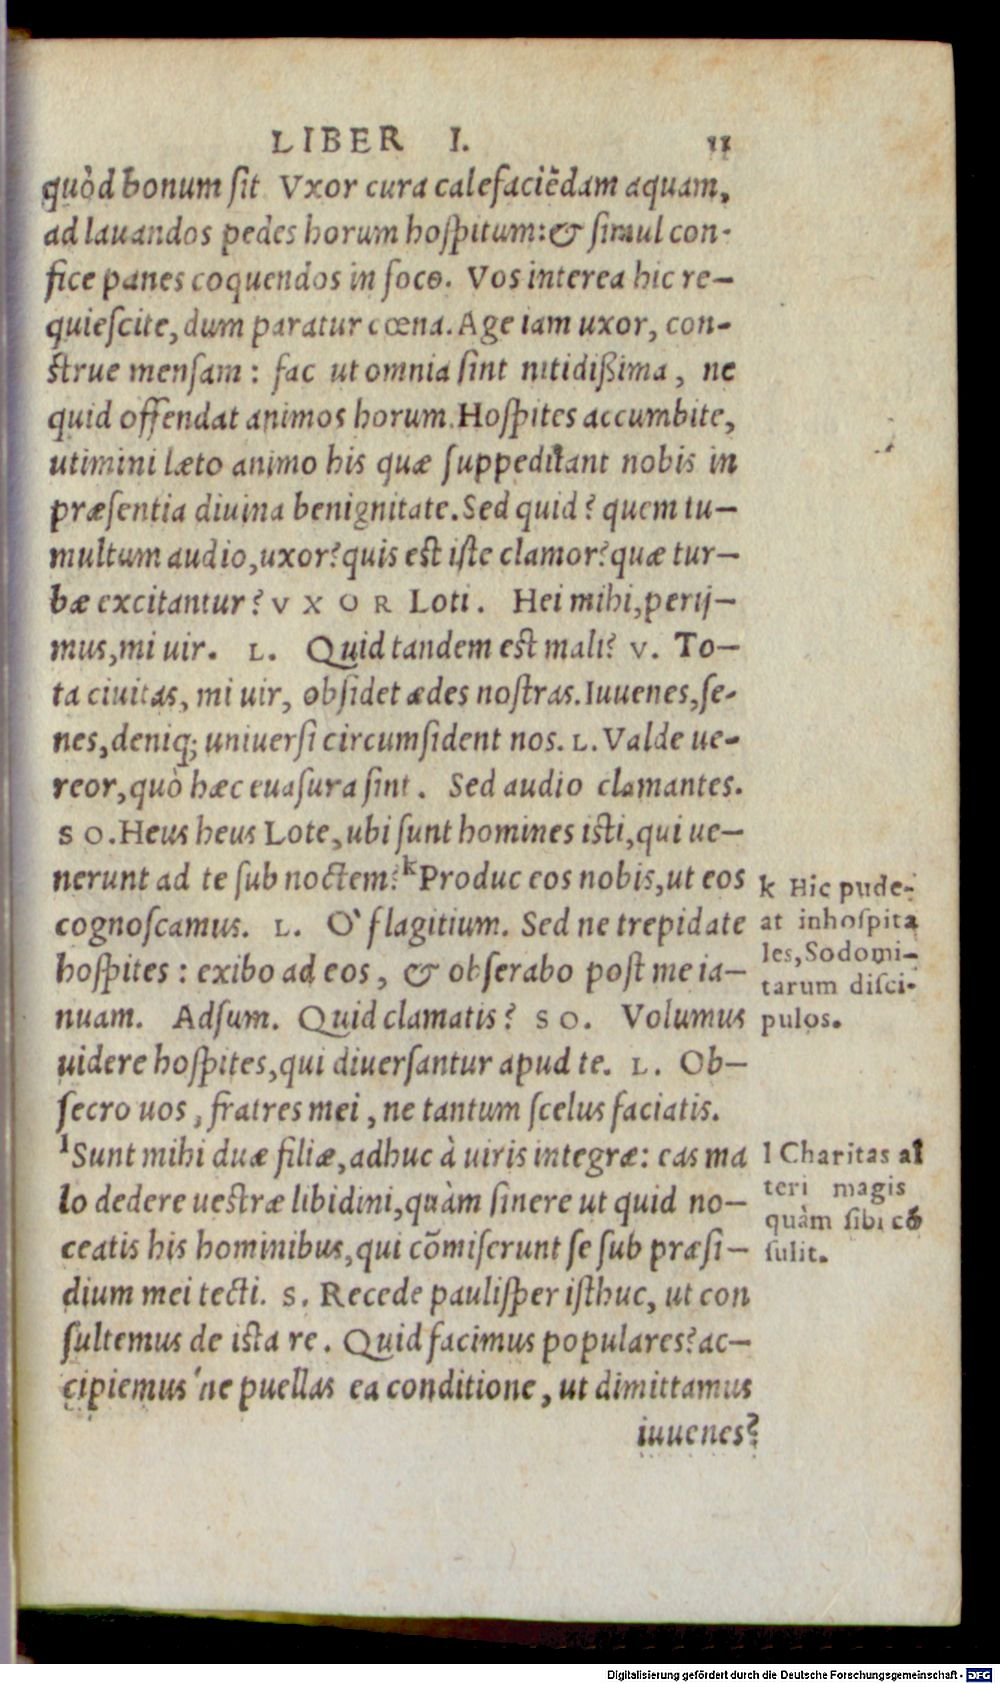 LIBER I. 11
quòd bonum sit Vxor cura calefaciẽdam aquam,
ad lauandos pedes horum hospitum: & simul con-
fice panes coquendos in foco. Vos interea hic re-
quiescite, dum paratur cœna. Age iam uxor, con-
strue mensam: fac ut omnia sint nitidißima, ne
quid offendat animos horum. Hospites accumbite,
utimini læto animo his quæ suppeditant nobis in
præsentia diuina benignitate. Sed quid? quem tu-
multum audio, uxor? quis est iste clamor? quæ tur-
bæ excitantur? VXOR Loti. Hei mihi, perij-
mus, mi uir. L. Quid tandem est mali? V. To-
ta ciuitas, mi uir, obsidet ædes nostras. Iuuenes, se-
nes, deniq; uniuersi circumsident nos. L. Valde ue-
reor, quò hæc euasura sint. Sed audio clamantes.
SO. Heus heus Lote, ubi sunt homines isti, qui ue-
nerunt ad te sub noctem? ᵏProduc eos nobis, ut eos
cognoscamus. L. O` flagitium. Sed ne trepidate
hospites: exibo ad eos, & obserabo post me ia-
nuam. Adsum. Quid clamatis? SO. Volumus
uidere hospites, qui diuersantur apud te. L. Ob-
secro uos, fratres mei, ne tantum scelus faciatis.
ˡSunt mihi duæ filiæ, adhuc à uiris integræ: eas ma
lo dedere uestræ libidini, quàm sinere ut quid no-
ceatis his hominibus, qui cõmiserunt se sub præsi-
dium mei tecti. S. Recede paulisper isthuc, ut con
sultemus de ista re. Quid facimus populares? ac-
cipiemus'ne puellas ea conditione, ut dimittamus
iuuenes?
k Hic pude-
at inhospita
les, Sodomi-
tarum disci-
pulos.
l Charitas al
teri magis
quàm sibi cõ
sulit.
Digitalisierung gefördert durch die Deutsche Forschungsgemeinschaft - DFG